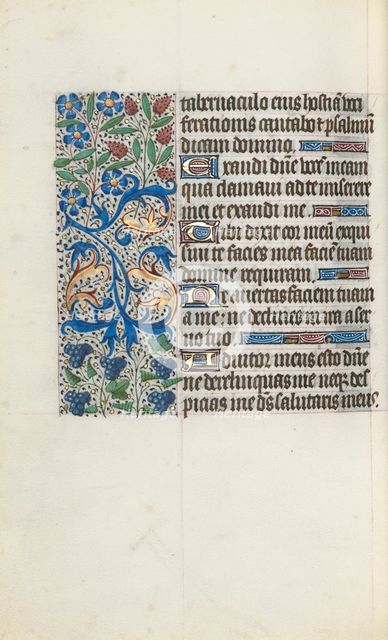 tabernaculo eius hostiam voci
ferationis cantabo et psalmum
dicam domino
Exaudi dne vocem meam
qua clamavi ad te miserere
mei et exaudi me
Tibi dixit cor meum exqui
sivit te facies mea faciem tuam
domine requiram
Ne avertas faciem tuam
a me ne declines in ira a ser
vo tuo
Adiutor meus esto dne
ne derelinquas me neque des
picias me ds salutaris meus